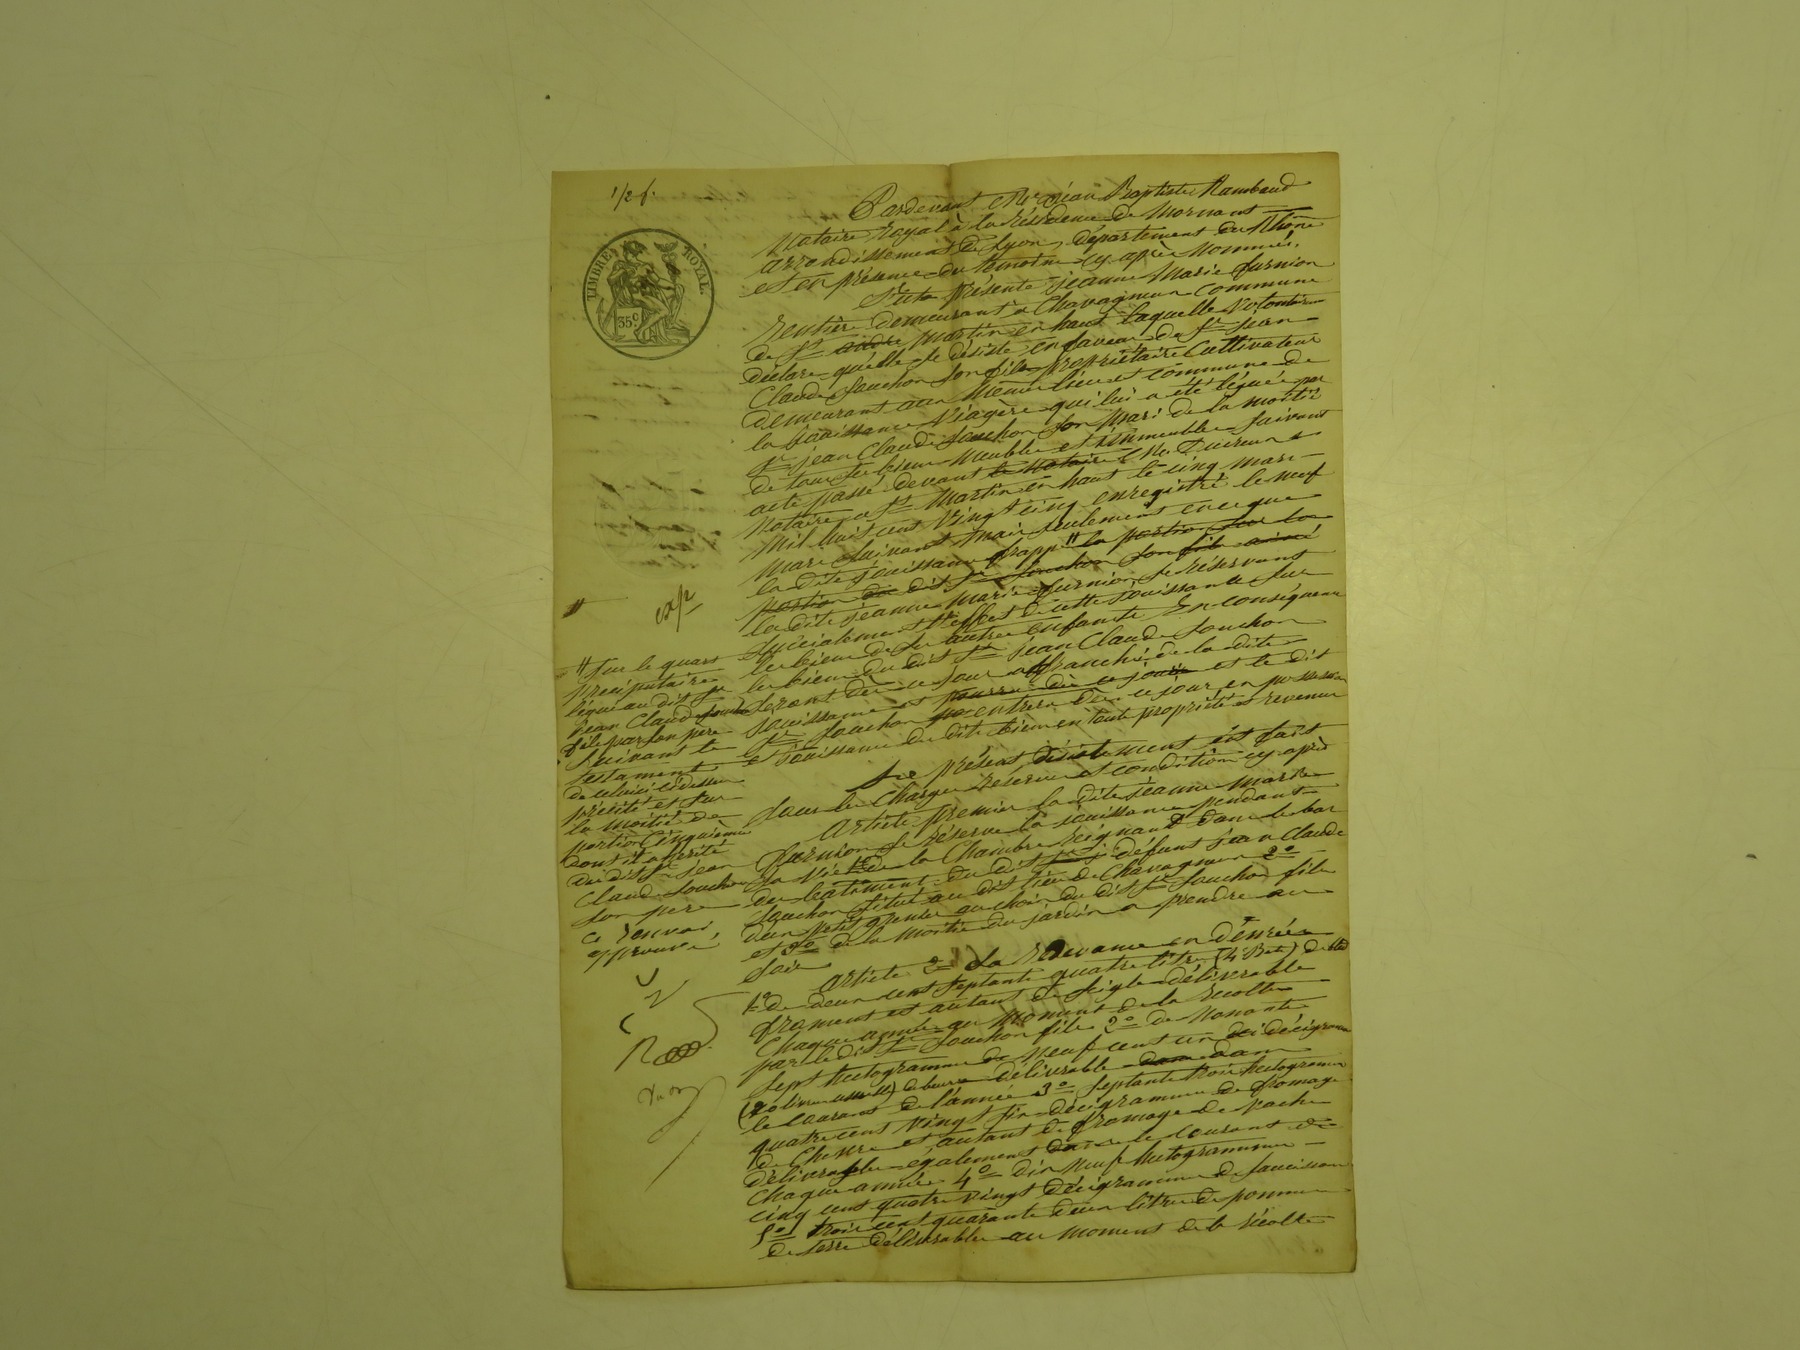 1/2 f.
TIMBRE ROYAL.
35 c.
Pardevant Me Jean Baptiste Rambaud
Notaire royal à la résidence de Mornant
arrondissement de Lyon, département du Rhône
et en présence du témoins cy après nommés.
S'est présentée jeanne Marie furnion
rentière demeurant à Chavagneux commune
de St andré Martin en haut laquelle volontaire
déclare qu'elle se désiste en faveur de Sr Jean
Claude Souchon son fils propriétaire Cultivateur
demeurant aux même lieu et commune de
la jouissance viagère qui lui a été léguée par
Sr jean Claude Souchon son Mari de la moitié
de tous ses biens meubles et immeubles suivant
acte passé devant le Notaire Me
Notaire a St Martin en haut le cinq mars
Mil huit cent vingt cinq enregistré le neuf
Mars suivant mais seulement en ce que
la dite jouissance frappe # la portion sur la
portion du dit Sr Souchon son fils ainé
la dite jeanne Marie furnion se réservant
spécialement l'effet de cette jouissance sur
les biens de ses autres enfants En conséquence
les biens du dit Sr jean Claude Souchon
seront dès ce jour affranchis de la dite
jouissance et pourra dès ce jour et le dit
Sr Souchon entrera dès ce jour en possession
et jouissance du dits biens en toute propriété et revenus
#
exp
# Sur le quart
préciputaire
légué au dit Sr
jean Claude Souchon
fils par son père
Suivant le
testament
de celui ci dessus
précité et sur
la moitié de
portion Cinquième
dont il a hérité
du dit Sr jean
Claude Souchon
son père
ce renvoi
approuvé
Le présent désistement est fait
sous les Charges réserves et conditions cy après
article premier la dite jeanne Marie
furnion se réserve la jouissance pendant
sa vie 1º de la Chambre reignant dans le bas
des batiments du dit Sr J défunt jean Claude
Souchon situé au dit lieu de Chavagneux 2º
d'un petit grenier au choix du dit Sr Souchon fils
et 3º de la moitié du jardin a prendre au
soir
article 2º La redevance en denrées
1º de deux cent septante quatre litres (4 Bets) de bled
froment et autant de seigle délivrable
Chaque année au moment de la récolte
par le dit Sr Souchon fils 2º de Nonante
sept hectogrammes neuf cent un décigrammes
(20 livres usuelles) de beurre délivrable dans
le courant de l'année 3º septante trois hectogrammes
quatre cent vingt six décigrammes de fromage
de Chevre et autant de fromage de vache
délivrable également dans le courant de
Chaque année 4º dix neuf hectogrammes
cinq cent quatre vingt décigrammes de saucisson
5º trois cent quarante deux litres de pommes
de terre délivrables au moment de la récolte